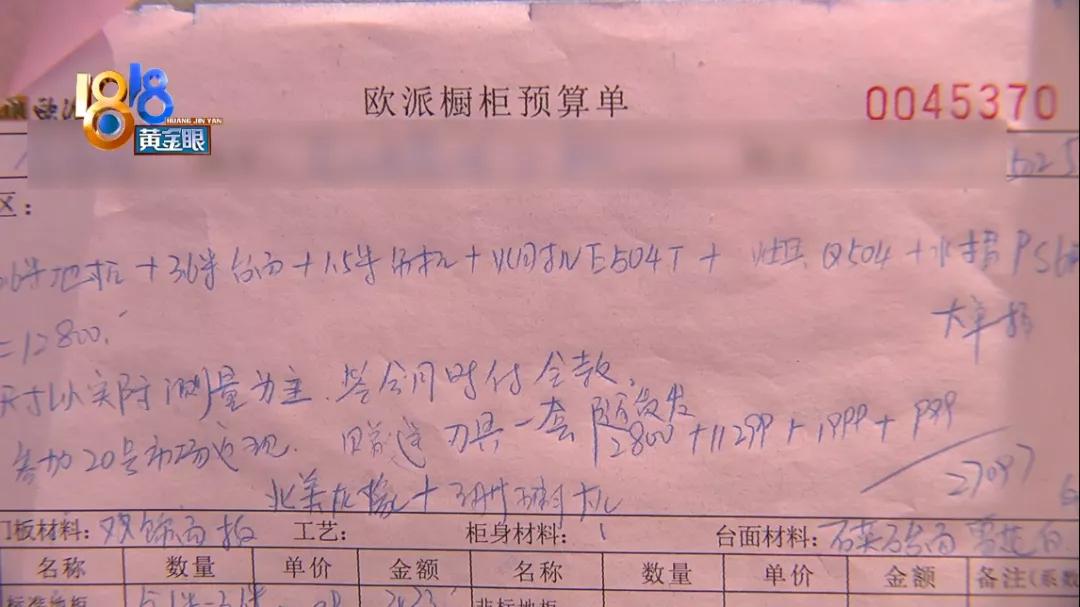 1818
HUANG JIN YAN
黄金眼
欧派橱柜预算单
0045370
区：
6米地柜+3.6米台面+1.5米吊柜+烟机E504T+灶具Q504+水槽PS6
大单槽
=12800.
尺寸以实际测量为主.签合同时付全款.
参加20号市场返现.赠送刀具一套
12800+11299+1999+999
27097
北美红橡+
门板材料：双饰面板
工艺：
柜身材料：
台面材料：石英石台面雪花白
名称 数量 单价 金额 名称 数量 单价 金额 备注(系数
标准地柜
非标地柜